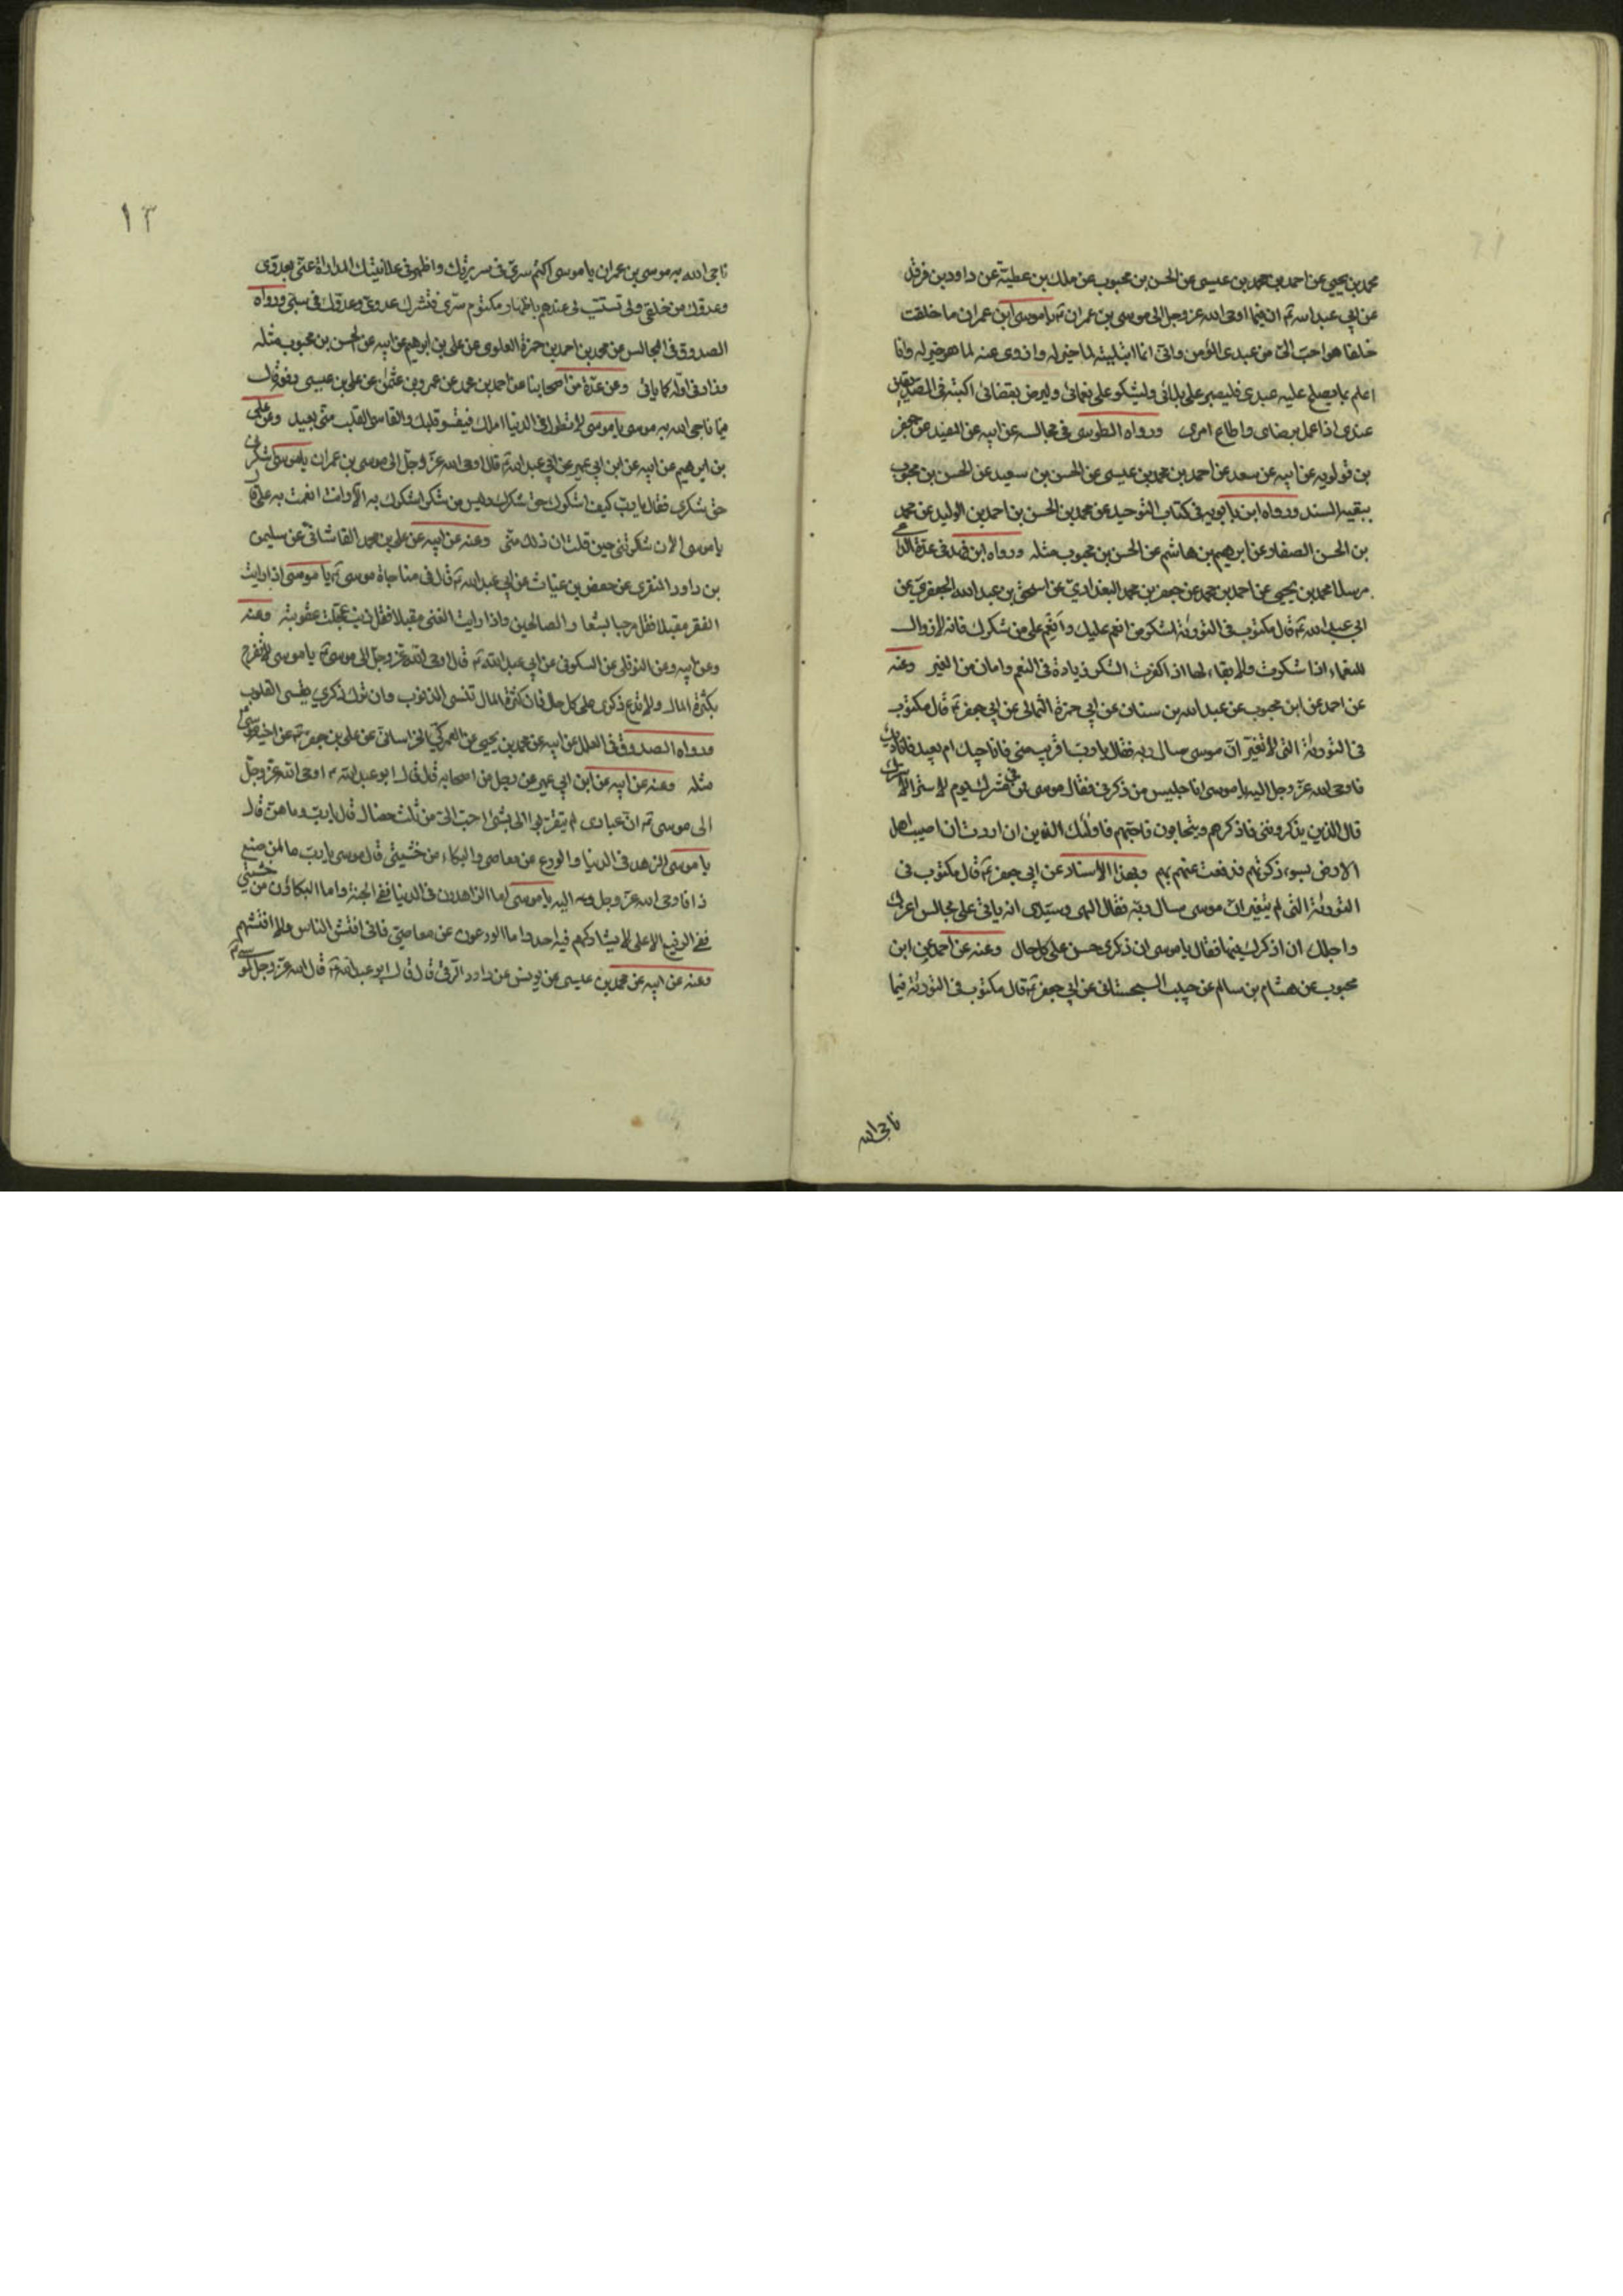 محمد بن يحيى عن احمد بن محمد بن عيسى عن الحسن بن محبوب عن ملك بن عطية عن داود بن فرقد
عن ابي عبد الله ع ان فيما اوحى الله عز وجل الى موسى بن عمران ع يا موسى ابن عمران ما خلقت
خلقا هو احب الى من عبدى المؤمن وانى انما ابتليته لما خير له وازوى عنه لما هو خير له وانا
اعلم بما يصلح عليه عبدى فليصبر على بلائى وليشكر على نعمائى وليرض بقضائى اكتبه فى الصديقين
عندى اذا عمل برضاى واطاع امرى ورواه الطوسى فى مجالسه عن ابيه عن المفيد عن جعفر
بن قولويه عن ابيه عن سعد عن احمد بن محمد بن عيسى عن الحسن بن سعيد عن الحسن بن محبوب
ببقية السند ورواه ابن بابويه فى كتاب التوحيد عن محمد بن الحسن بن احمد بن الوليد عن محمد
بن الحسن الصفار عن ابرهيم بن هاشم عن الحسن بن محبوب مثله ورواه ابن فهد فى عدة الداعى
مرسلا محمد بن يحيى عن احمد بن محمد عن جعفر بن محمد البغدادي عن اسحق بن عبد الله الجعفري عن
ابي عبد الله ع قال مكتوب فى التورية اشكر من انعم عليك وانعم على من شكرك فانه لا زوال
للنعماء اذا شكرت ولا بقاء لها اذا كفرت الشكر زيادة فى النعم وامان من الغير وعنه
عن احمد عن ابن محبوب عن عبد الله بن سنان عن ابي حمزة الثمالى عن ابي جعفر ع قال مكتوب
فى التورية التى لم تغير ان موسى سال ربه فقال يا رب اقريب منى فاناجيك ام بعيد فاناديك
فاوحى الله عز وجل اليه يا موسى انا جليس من ذكرنى فقال موسى فمن فى سترك يوم لا ستر الا سترك
قال الذين يذكروننى فاذكرهم ويتحابون فى فاحبهم فاولئك الذين ان اردت ان اصيب اهل
الارض بسوء ذكرتهم فدفعت عنهم بهم وبهذا الاسناد عن ابي جعفر ع قال مكتوب فى
التورية التى لم تغير ان موسى سال ربه فقال الهى وسيدى انه ياتى على مجالس اعزك
واجلك ان اذكرك فيها فقال يا موسى ان ذكرى حسن على كل حال وعنه عن احمد عن ابن
محبوب عن هشام بن سالم عن حبيب السجستانى عن ابي جعفر ع قال مكتوب فى التورية فيما
ناجى الله
١٣
ناجى الله به موسى بن عمران يا موسى اكتم سرى فى سريرتك واظهر فى علانيتك المداراة عنى لعدوى
وعدوك من خلقى ولا تستسب لى عندهم باظهار مكتوم سرى فتشرك عدوى وعدوك فى سبى ورواه
الصدوق فى المجالس عن محمد بن احمد بن حمزة العلوى عن على بن ابرهيم عن ابيه عن الحسن بن محبوب مثله
وزاد فى اوله كما ياتى وعن عدة من اصحابنا عن احمد بن محمد عن عمرو بن عثمن عن على بن عيسى رفعه قال
فيما ناجى الله به موسى يا موسى لا تطول فى الدنيا املك فيقسو قلبك والقاسى القلب منى بعيد وعن على
بن ابرهيم عن ابيه عن ابن ابي عمير عن ابي عبد الله ع قال اوحى الله عز وجل الى موسى بن عمران يا موسى اشكرنى
حق شكرى فقال يا رب كيف اشكرك حق شكرك وليس من شكر اشكرك به الا وانت انعمت به على قال
يا موسى الان شكرتنى حين قلت ان ذلك منى وعنه عن ابيه عن على بن محمد القاشانى عن سليمن
بن داود المنقرى عن حفص بن غياث عن ابي عبد الله ع قال فى مناجاة موسى ع يا موسى اذا رايت
الفقر مقبلا فقل مرحبا بشعار الصالحين واذا رايت الغنى مقبلا فقل ذنب عجلت عقوبته وعنه
وعن ابيه وعن النوفلى عن السكونى عن ابي عبد الله ع قال اوحى الله عز وجل الى موسى ع يا موسى لا تفرح
بكثرة المال ولا تدع ذكرى على كل حال فان كثرة المال تنسى الذنوب وان ترك ذكري يقسى القلوب
ورواه الصدوق فى العلل عن ابيه عن محمد بن يحيى عن العمركي الخراسانى عن على بن جعفر ع عن اخيه موسى ع
مثله وعنه عن ابيه عن ابن ابي عمير عن رجل من اصحابه قال قال ابو عبد الله ع اوحى الله عز وجل
الى موسى ع ان عبادى لم يتقربوا الى بشئ احب الى من ثلث خصال قال يا رب وما هن قال
يا موسى الزهد فى الدنيا والورع عن معاصى والبكاء من خشيتى قال موسى يا رب ما لمن صنع
ذا فاوحى الله عز وجل اليه يا موسى اما الزاهدون فى الدنيا ففى الجنة واما البكاؤن من خشيتي
ففى الرفيع الاعلى لا يشاركهم فيه احد واما الورعون عن معاصيي فانى افتش الناس ولا افتشهم
وعنه عن ابيه عن محمد بن عيسى عن يونس عن داود الرقى قال قال ابو عبد الله ع قال الله عز وجل لموسى ع